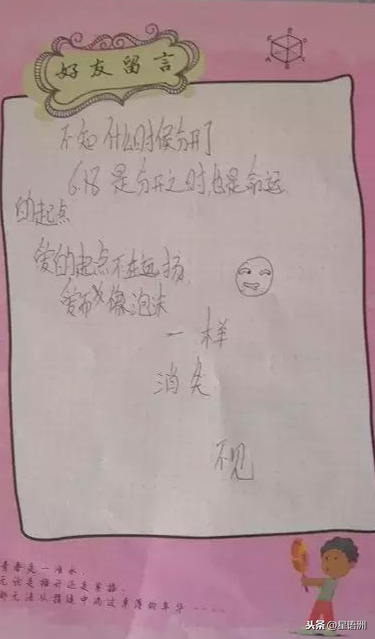 好友留言
不知什么时候分开了
6.18是分开之时,也是命运
的起点
爱的起点不在远扬,
爱却像泡沫
一样
消失
不见
青春是一淮水,
无论是摊开还是紧握,
都无法从指缝中淌过年华....
头条@星语洲